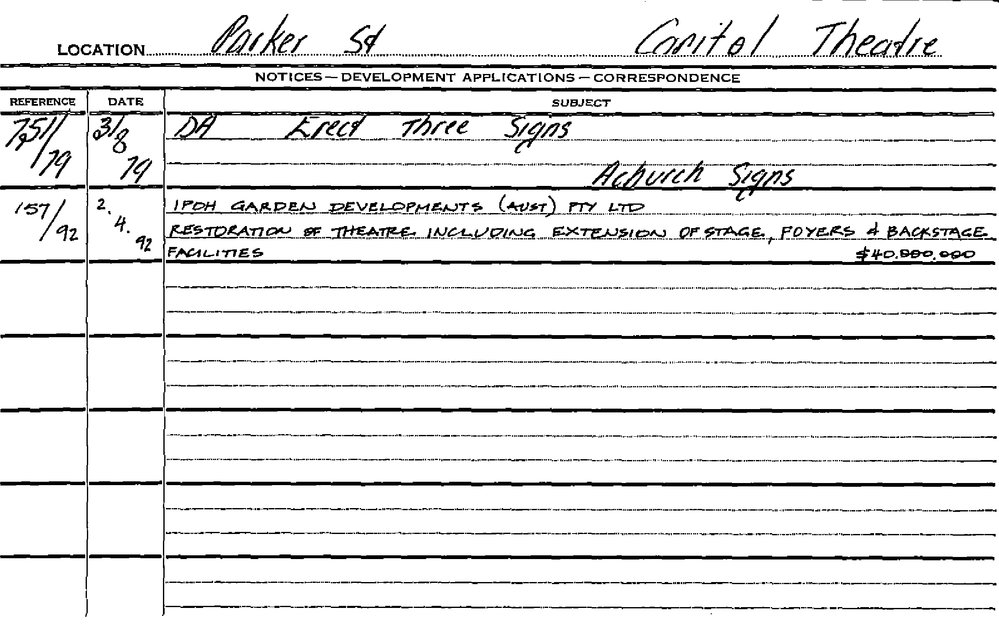 LOCATION Parker St Capitol Theatre
NOTICES—DEVELOPMENT APPLICATIONS—CORRESPONDENCE
REFERENCE DATE SUBJECT
751/79 3/8/79 DA Erect Three Signs
Achurch Signs
157/92 2.4.92 IPOH GARDEN DEVELOPMENTS (AUST) PTY LTD
RESTORATION OF THEATRE INCLUDING EXTENSION OF STAGE, FOYERS & BACKSTAGE
FACILITIES $40,000,000